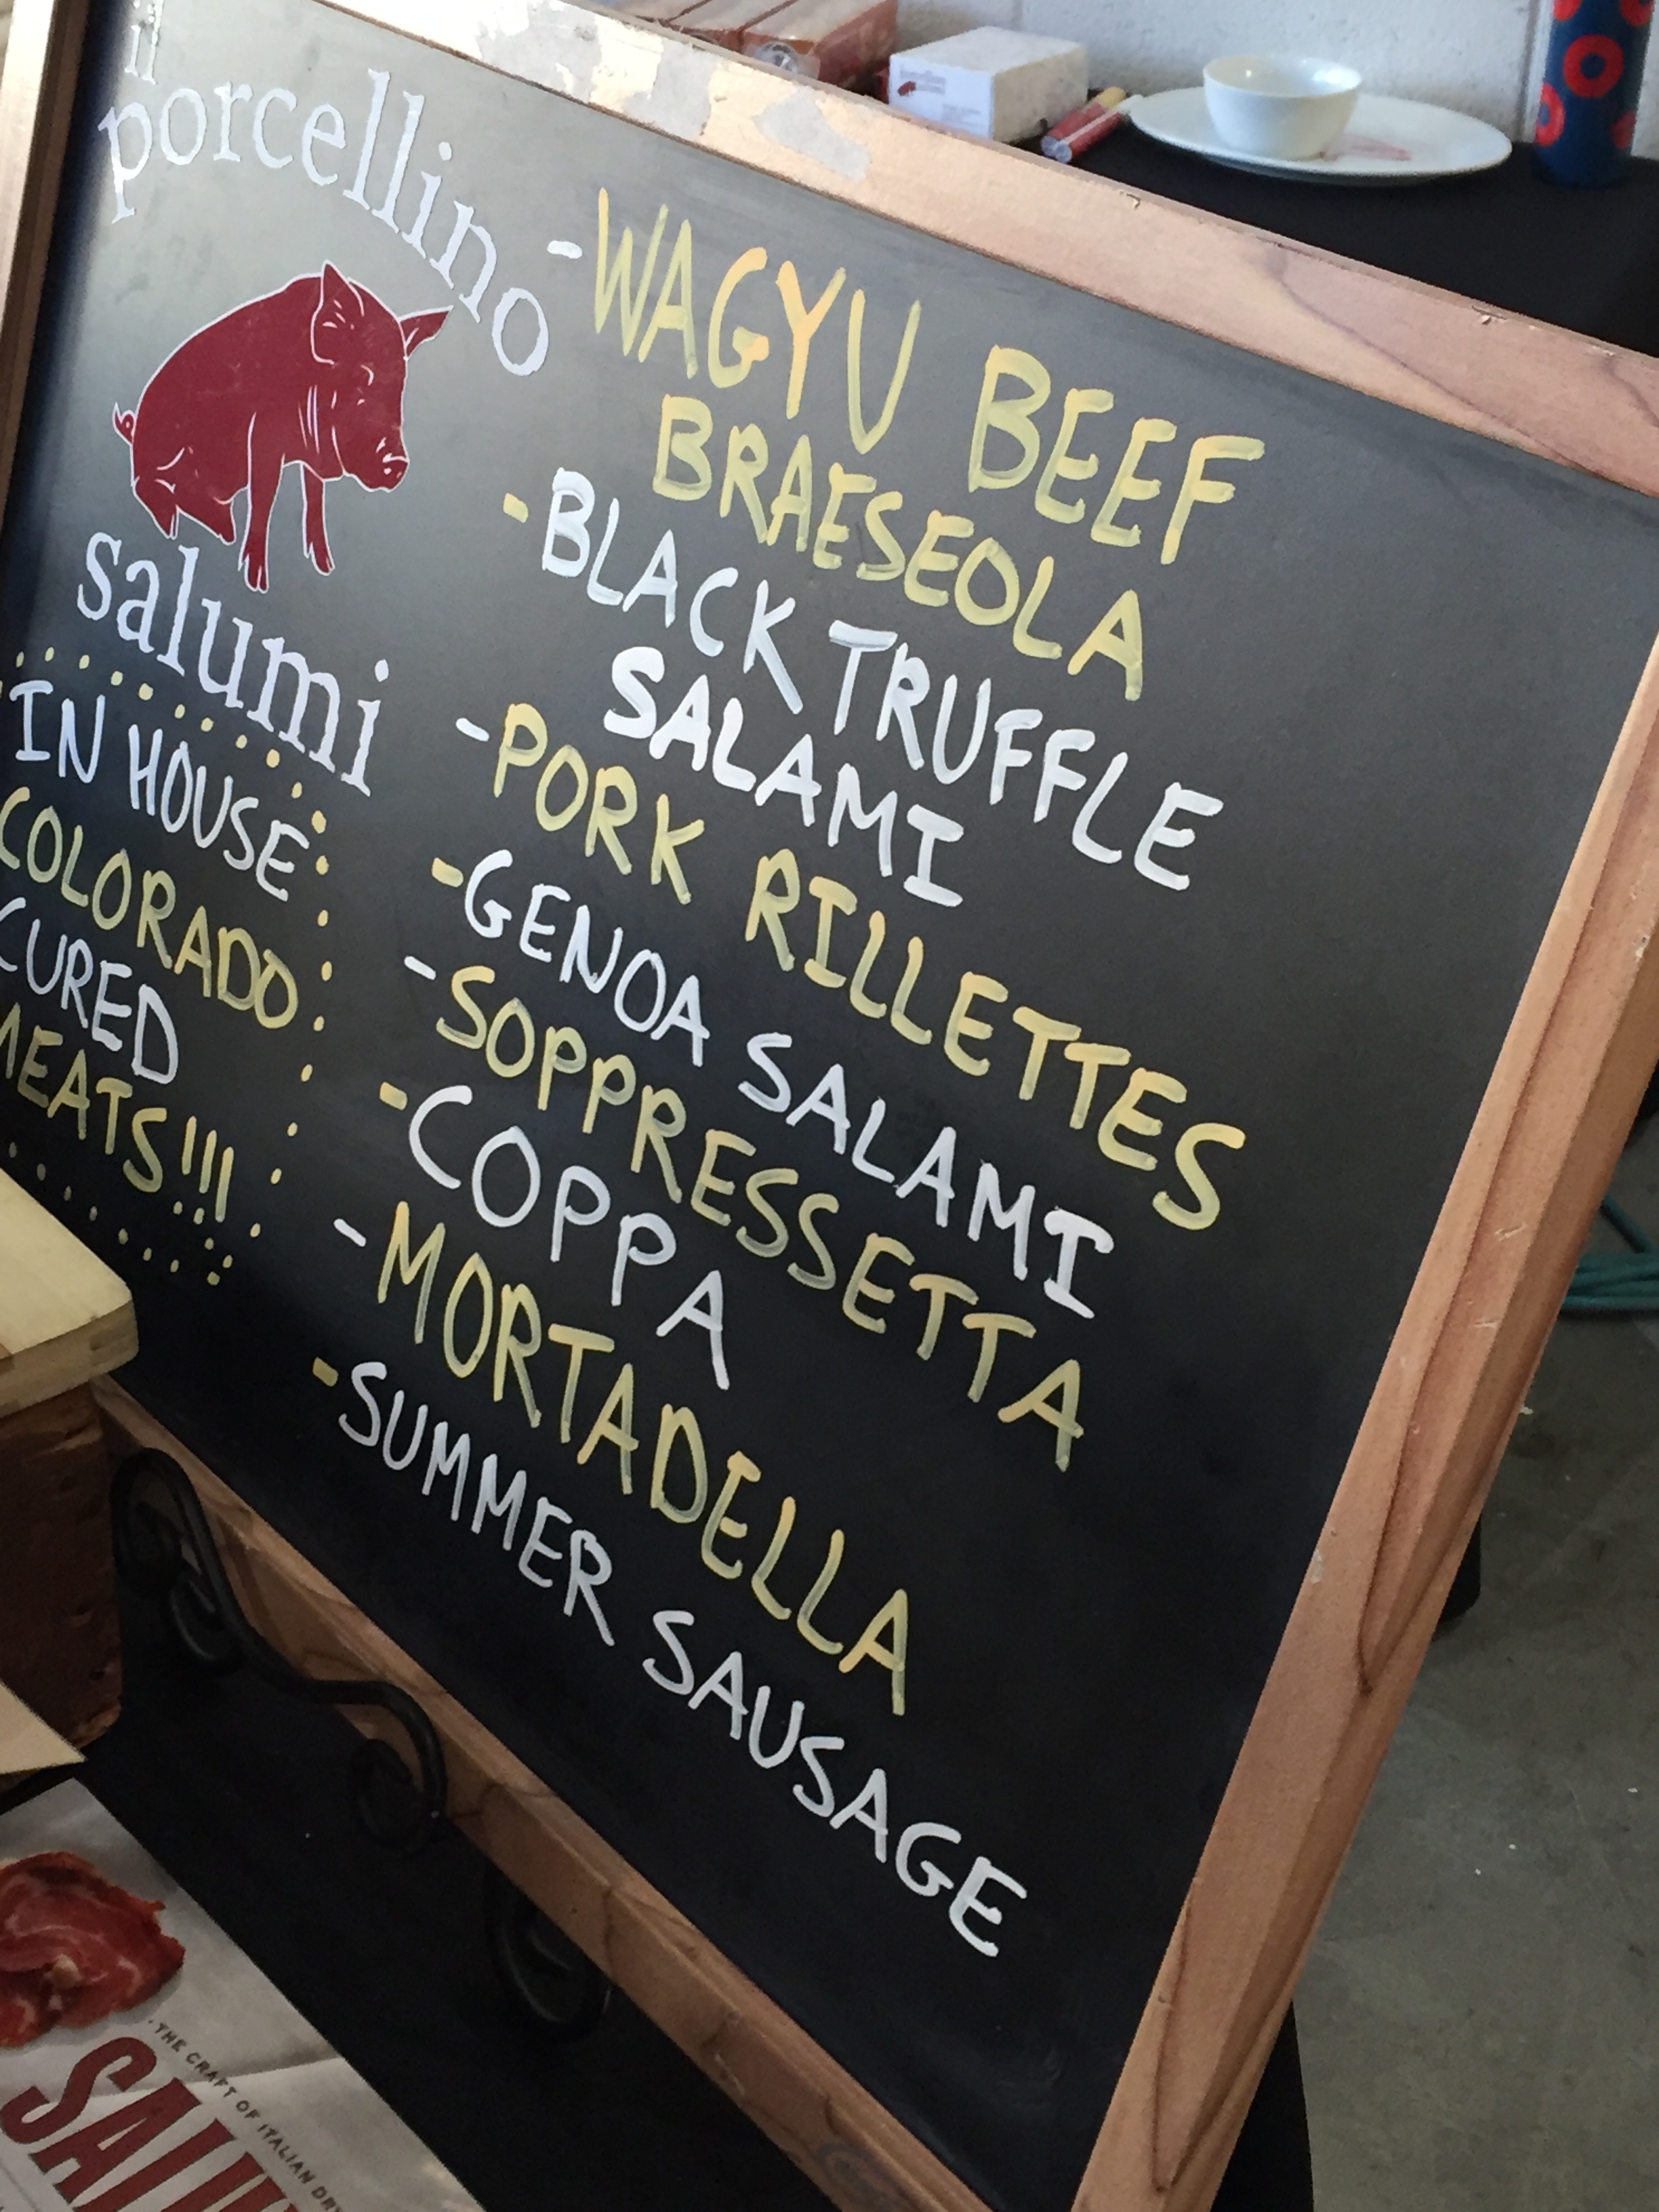 il
porcellino
salumi
IN HOUSE
COLORADO
CURED
MEATS!!!
-WAGYU BEEF
BRAESEOLA
-BLACK TRUFFLE
SALAMI
-PORK RILLETTES
-GENOA SALAMI
-SOPPRESSETTA
-COPPA
-MORTADELLA
-SUMMER SAUSAGE
THE CRAFT OF ITALIAN DRY